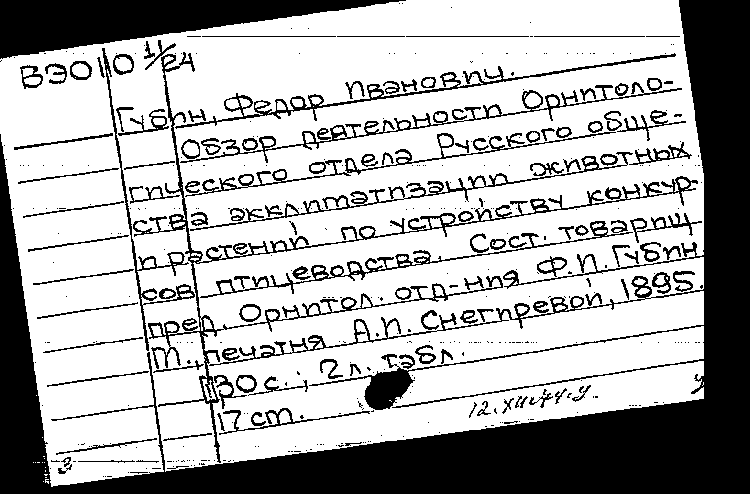 ВЭ0110 11/24
Губин, Федор Иванович.
Обзор деятельности Орнитоло-
гического отдела Русского обще-
ства акклиматизации животных
и растений по устройству конкур-
сов птицеводства. Сост. товарищ
пред. Орнитол. отд-ния Ф.И. Губин.
М., печатня А.И. Снегиревой, 1895.
30 с.; 2 л. табл.
17 cm.